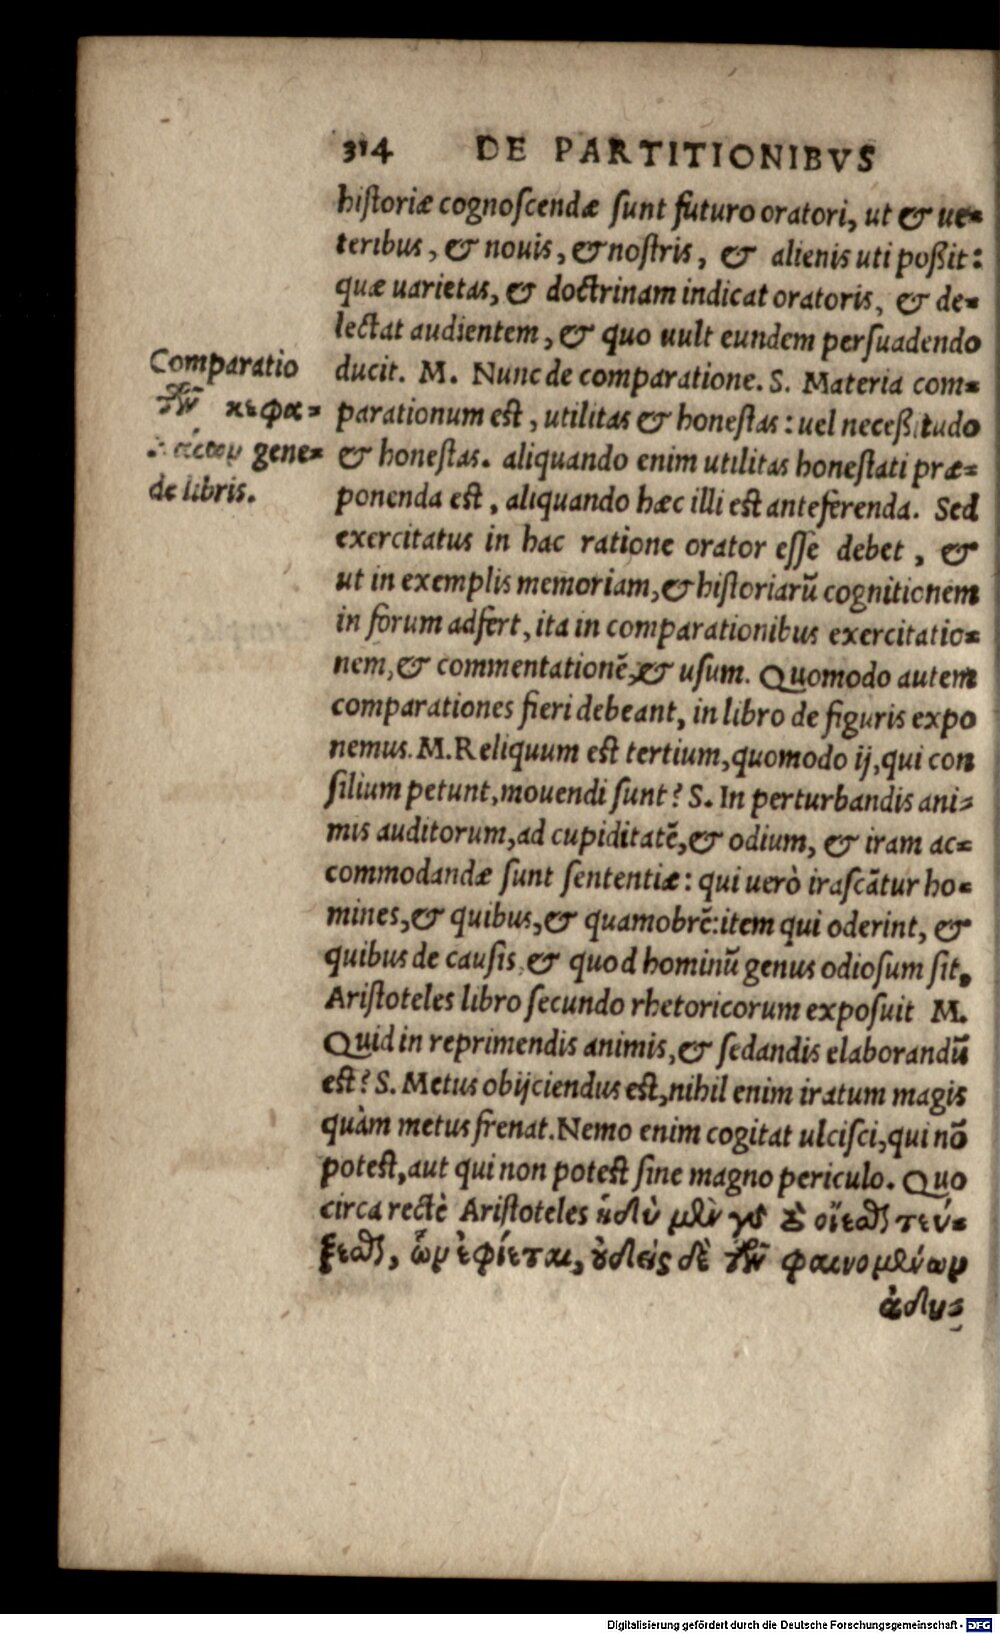 314 DE PARTITIONIBVS
historiæ cognoscendæ sunt futuro oratori, ut & ue=
teribus, & nouis, & nostris, & alienis uti poßit:
quæ uarietas, & doctrinam indicat oratoris, & de=
lectat audientem, & quo uult eundem persuadendo
ducit. M. Nunc de comparatione. S. Materia com=
parationum est, utilitas & honestas: uel neceßitudo
& honestas. aliquando enim utilitas honestati præ=
ponenda est, aliquando hæc illi est anteferenda. Sed
exercitatus in hac ratione orator esse debet, &
ut in exemplis memoriam, & historiarũ cognitionem
in forum adfert, ita in comparationibus exercitatio=
nem, & commentationẽ, & usum. Quomodo autem
comparationes fieri debeant, in libro de figuris expo
nemus. M. Reliquum est tertium, quomodo ij, qui con
silium petunt, mouendi sunt? S. In perturbandis ani=
mis auditorum, ad cupiditatẽ, & odium, & iram ac=
commodandæ sunt sententiæ: qui uerò irascãtur ho=
mines, & quibus, & quamobrẽ: item qui oderint, &
quibus de causis, & quod hominũ genus odiosum sit,
Aristoteles libro secundo rhetoricorum exposuit M.
Quid in reprimendis animis, & sedandis elaborandũ
est? S. Metus obijciendus est, nihil enim iratum magis
quàm metus frenat. Nemo enim cogitat ulcisci, qui nõ
potest, aut qui non potest sine magno periculo. Quo
circa rectè Aristoteles ἡδὺ μὲν γὰρ τὸ οἴεσθαι τεύ=
ξεσθαι, ὧν ἐφίεται, οὐδεὶς δὲ τῶν φαινομένων
ἀδυ=
Comparatio
τῶν κεφα=
gene=
de libris.
Digitalisierung gefördert durch die Deutsche Forschungsgemeinschaft - DFG